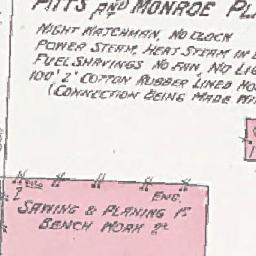 PITTS AND MONROE PL
NIGHT WATCHMAN, NO CLOCK
POWER STEAM, HEAT STEAM IN
FUEL SHAVINGS NO FAN, NO LIG
100' 2" COTTON RUBBER LINED HO
(CONNECTION BEING MADE WI
ENG.
SAWING & PLANING 1ST
BENCH WORK 2D